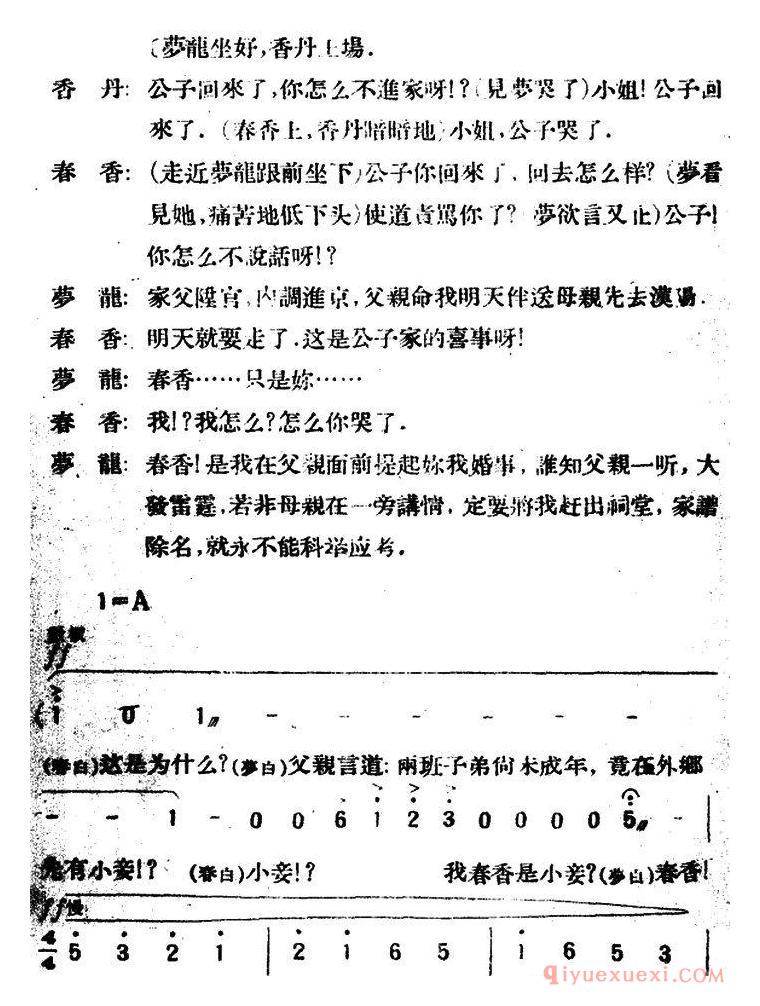 (夢龍坐好,香丹上場.
香 丹: 公子回來了,你怎么不進家呀!?(見夢哭了)小姐!公子回
來了.(春香上,香丹暗暗地)小姐,公子哭了.
春 香: (走近夢龍跟前坐下)公子你回來了,回去怎么样?(夢看
見她,痛苦地低下头)使道責罵你了?(夢欲言又止)公子!
你怎么不說話呀!?
夢 龍: 家父陞官,內調進京,父親命我明天伴送母親先去漢陽.
春 香: 明天就要走了.这是公子家的喜事呀!
夢 龍: 春香……只是妳……
春 香: 我!?我怎么?怎么你哭了.
夢 龍: 春香!是我在父親面前提起妳我婚事,誰知父親一听,大
發雷霆,若非母親在一旁講情,定要將我赶出祠堂,家譜
除名,就永不能科举应考.
1=A
ff
( 1 0 1 - - - - - -
(春白)这是为什么?(夢白)父親言道:兩班子弟尙未成年,竟在外鄉
- - 1 - 0 0 6 1 2 3 0 0 0 0 5 - |
先有小妾!? (春白)小妾!? 我春香是小妾?(夢白)春香!
ff 慢
4/4 5 3 2 1 | 2 1 6 5 | 1 6 5 3 |
qiyuexuexi.com